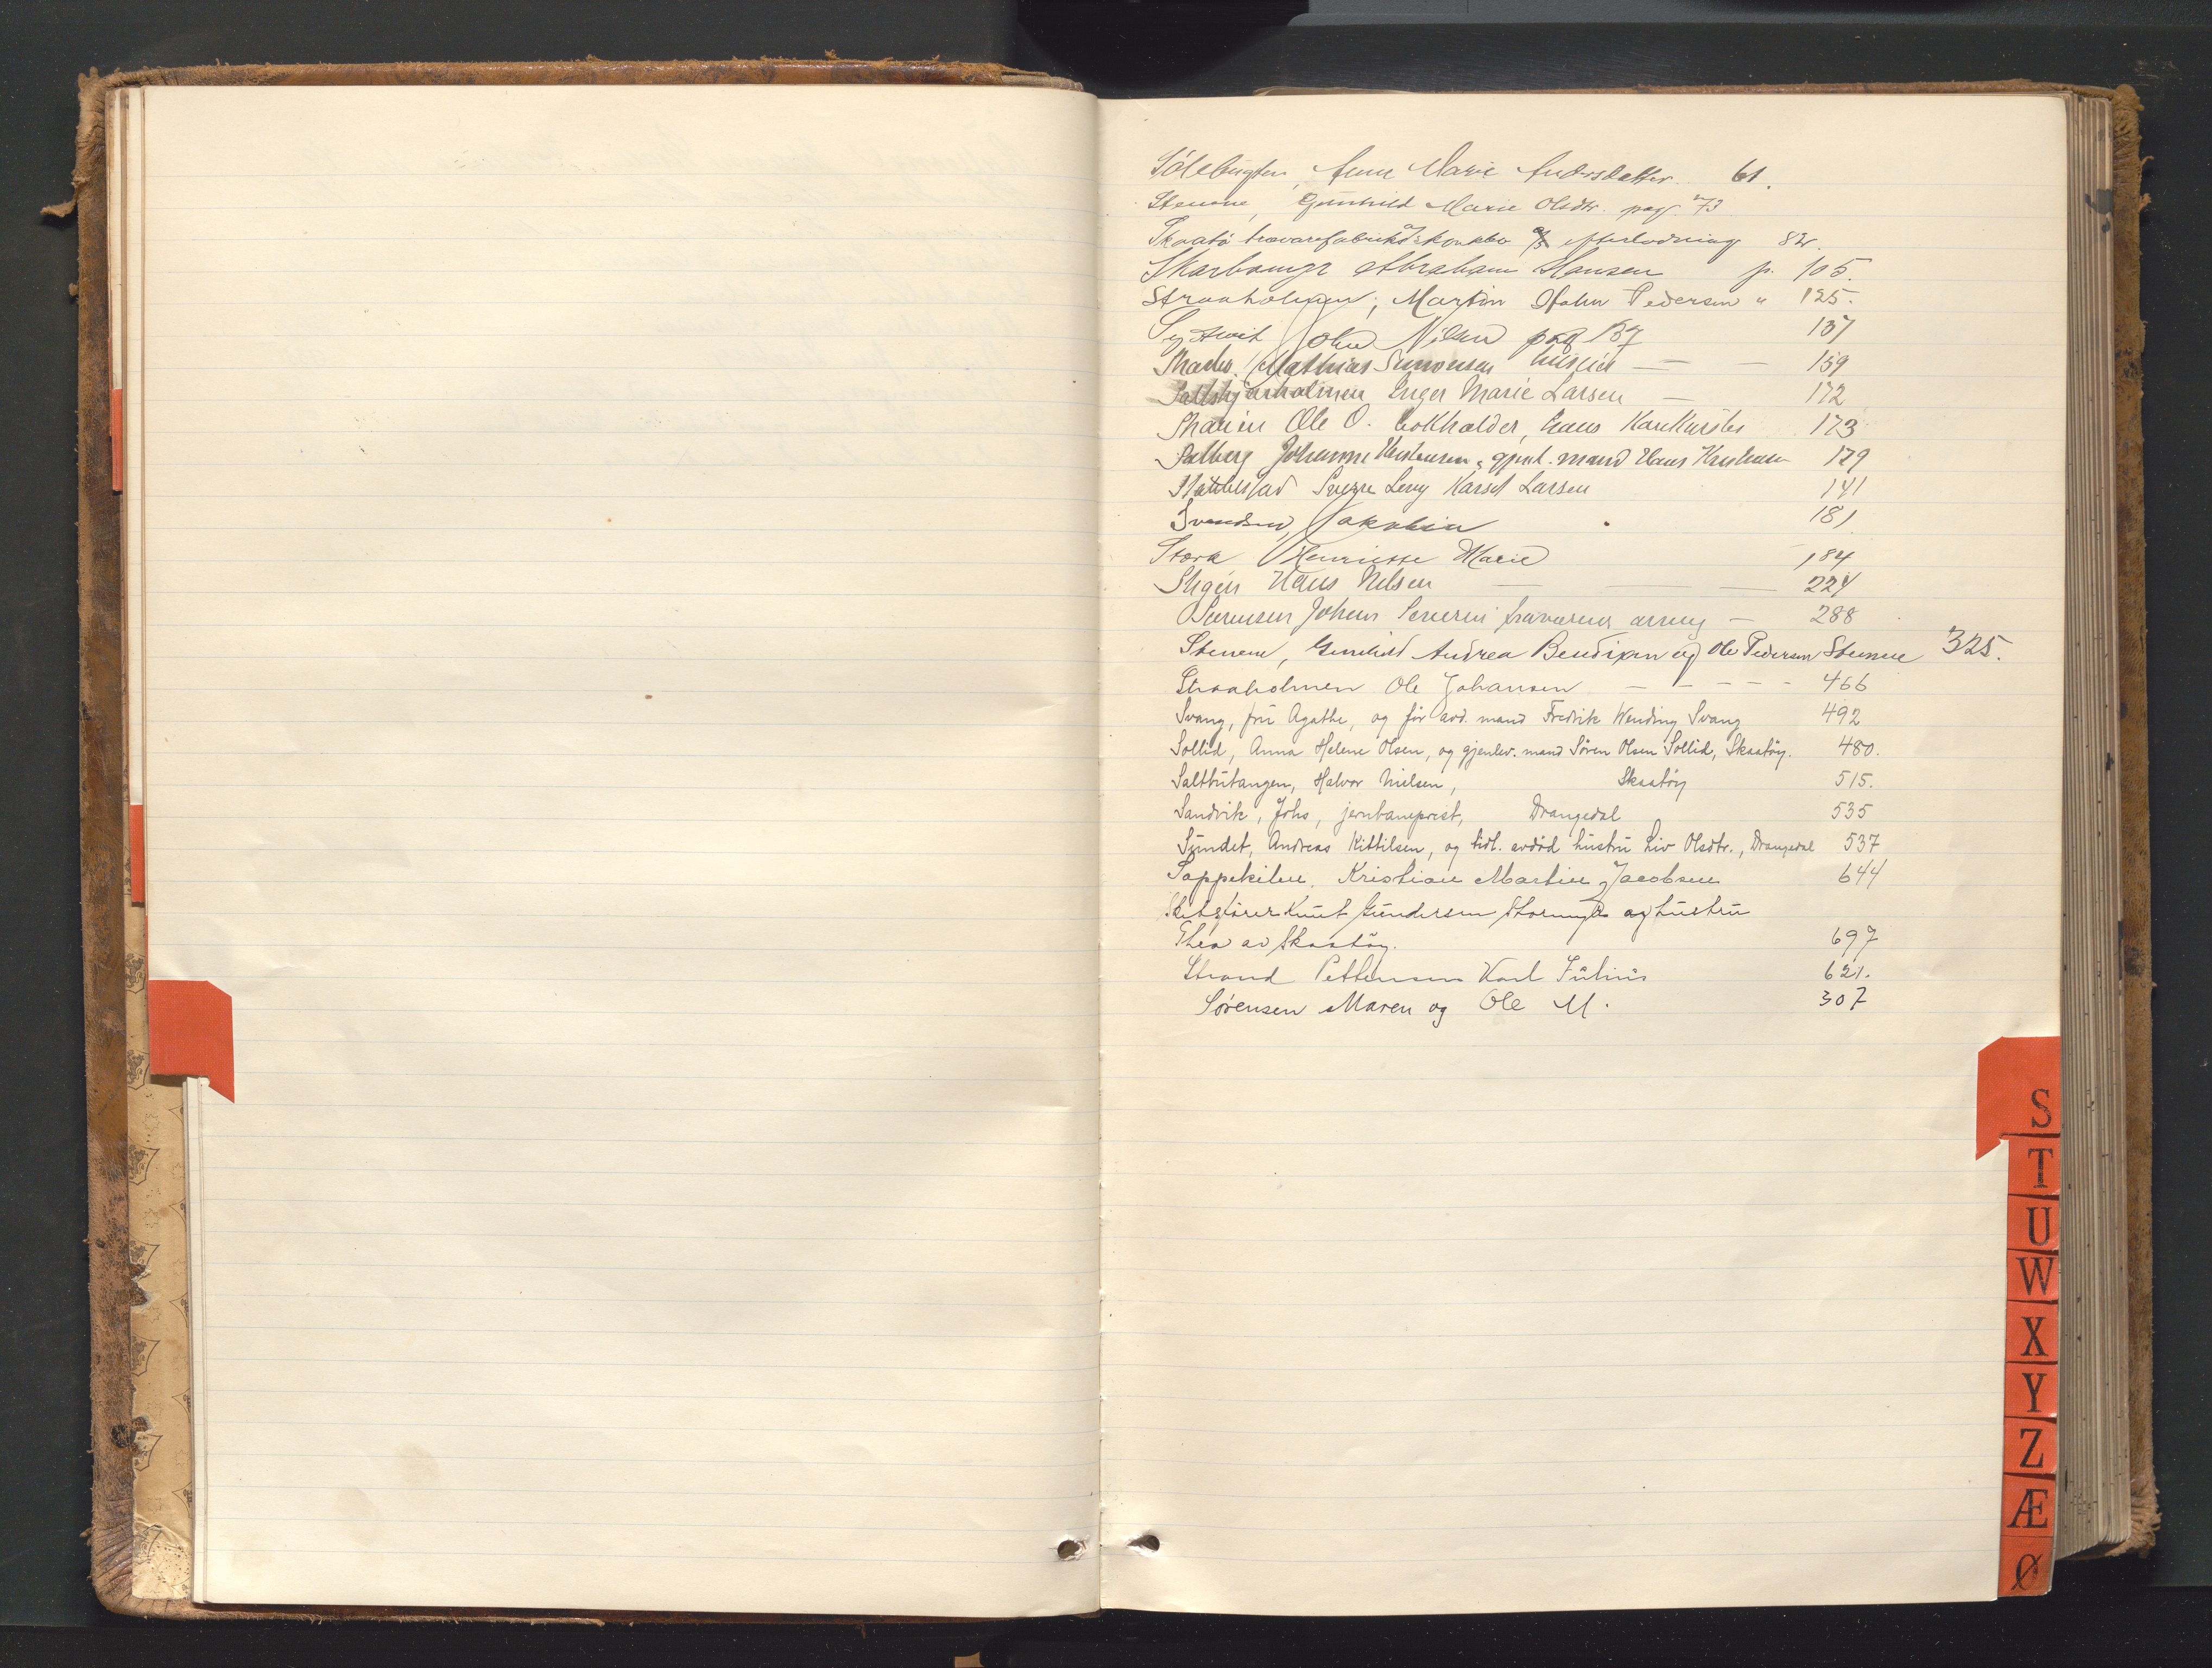 Sølebugten, Anne Marie Andersdatter 61.
Stenene, Gunhild Marie Olsdtr. pag. 73
Skaatø trævarefabriks konkbo efterlodning 82.
Skarbomyr Abraham Hansen p. 105.
Straaholmen, Martin John Pedersen " 125.
John Nilsen pag 137 137
Mathias Simonsen hustru — — 159
holmen Inger Marie Larsen — 172
Ole O. bokholder, hans 173
Johanne Kristensen, gjenl. mand Hans Kristensen 179
Sverre Leny Larsen 141
Svendsen, Jakobin 181
Stork Henriette Marie 184
Hans Nilsen — — — 224
Sørensen Johan Severin fraværens arving — 288
Stenene, Gunhild Andrea Bendixen og Ole Pedersen Stenene 325.
Straaholmen Ole Johansen — — — — - 466
Svang, fru Agathe, og før avd. mand Fredrik Wending Svang 492
Sollid, Anna Helene Olsen, og gjenlev. mand Søren Olsen Sollid, Skaatøy. 480.
Saltbutangen, Halvor Nielsen, Skaatøy 515.
Sandvik, Johs, jernbaneprest, Drangedal 535
Sundet, Andreas Kittilsen, og tidl. avdød hustru Liv Olsdtr., Drangedal 537
Soppekilen, Kristian Martin Jacobsen 644
Knut Gundersen Stormyr og hustru
Thea av Skaatøy. 697
Strand Pettersen Karl Julius 621.
Sørensen Maren og Ole M. 307
S
T
U
W
X
Y
Z
Æ
Ø